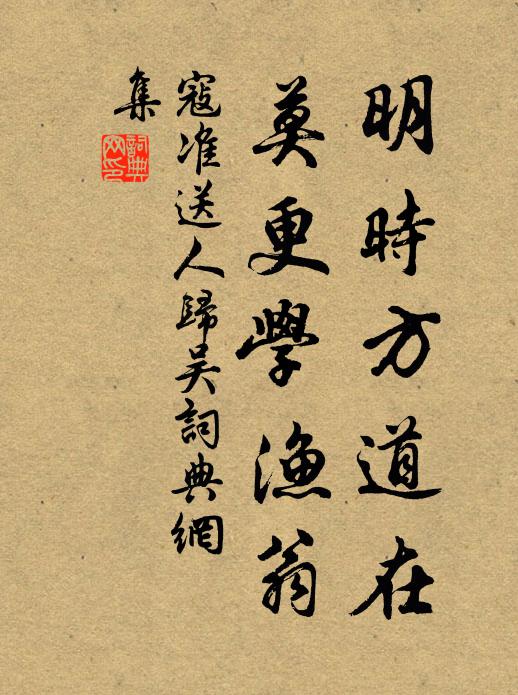 明時方道在
莫更學漁翁
寇准送人歸吴詞典網
集
詞典
网印